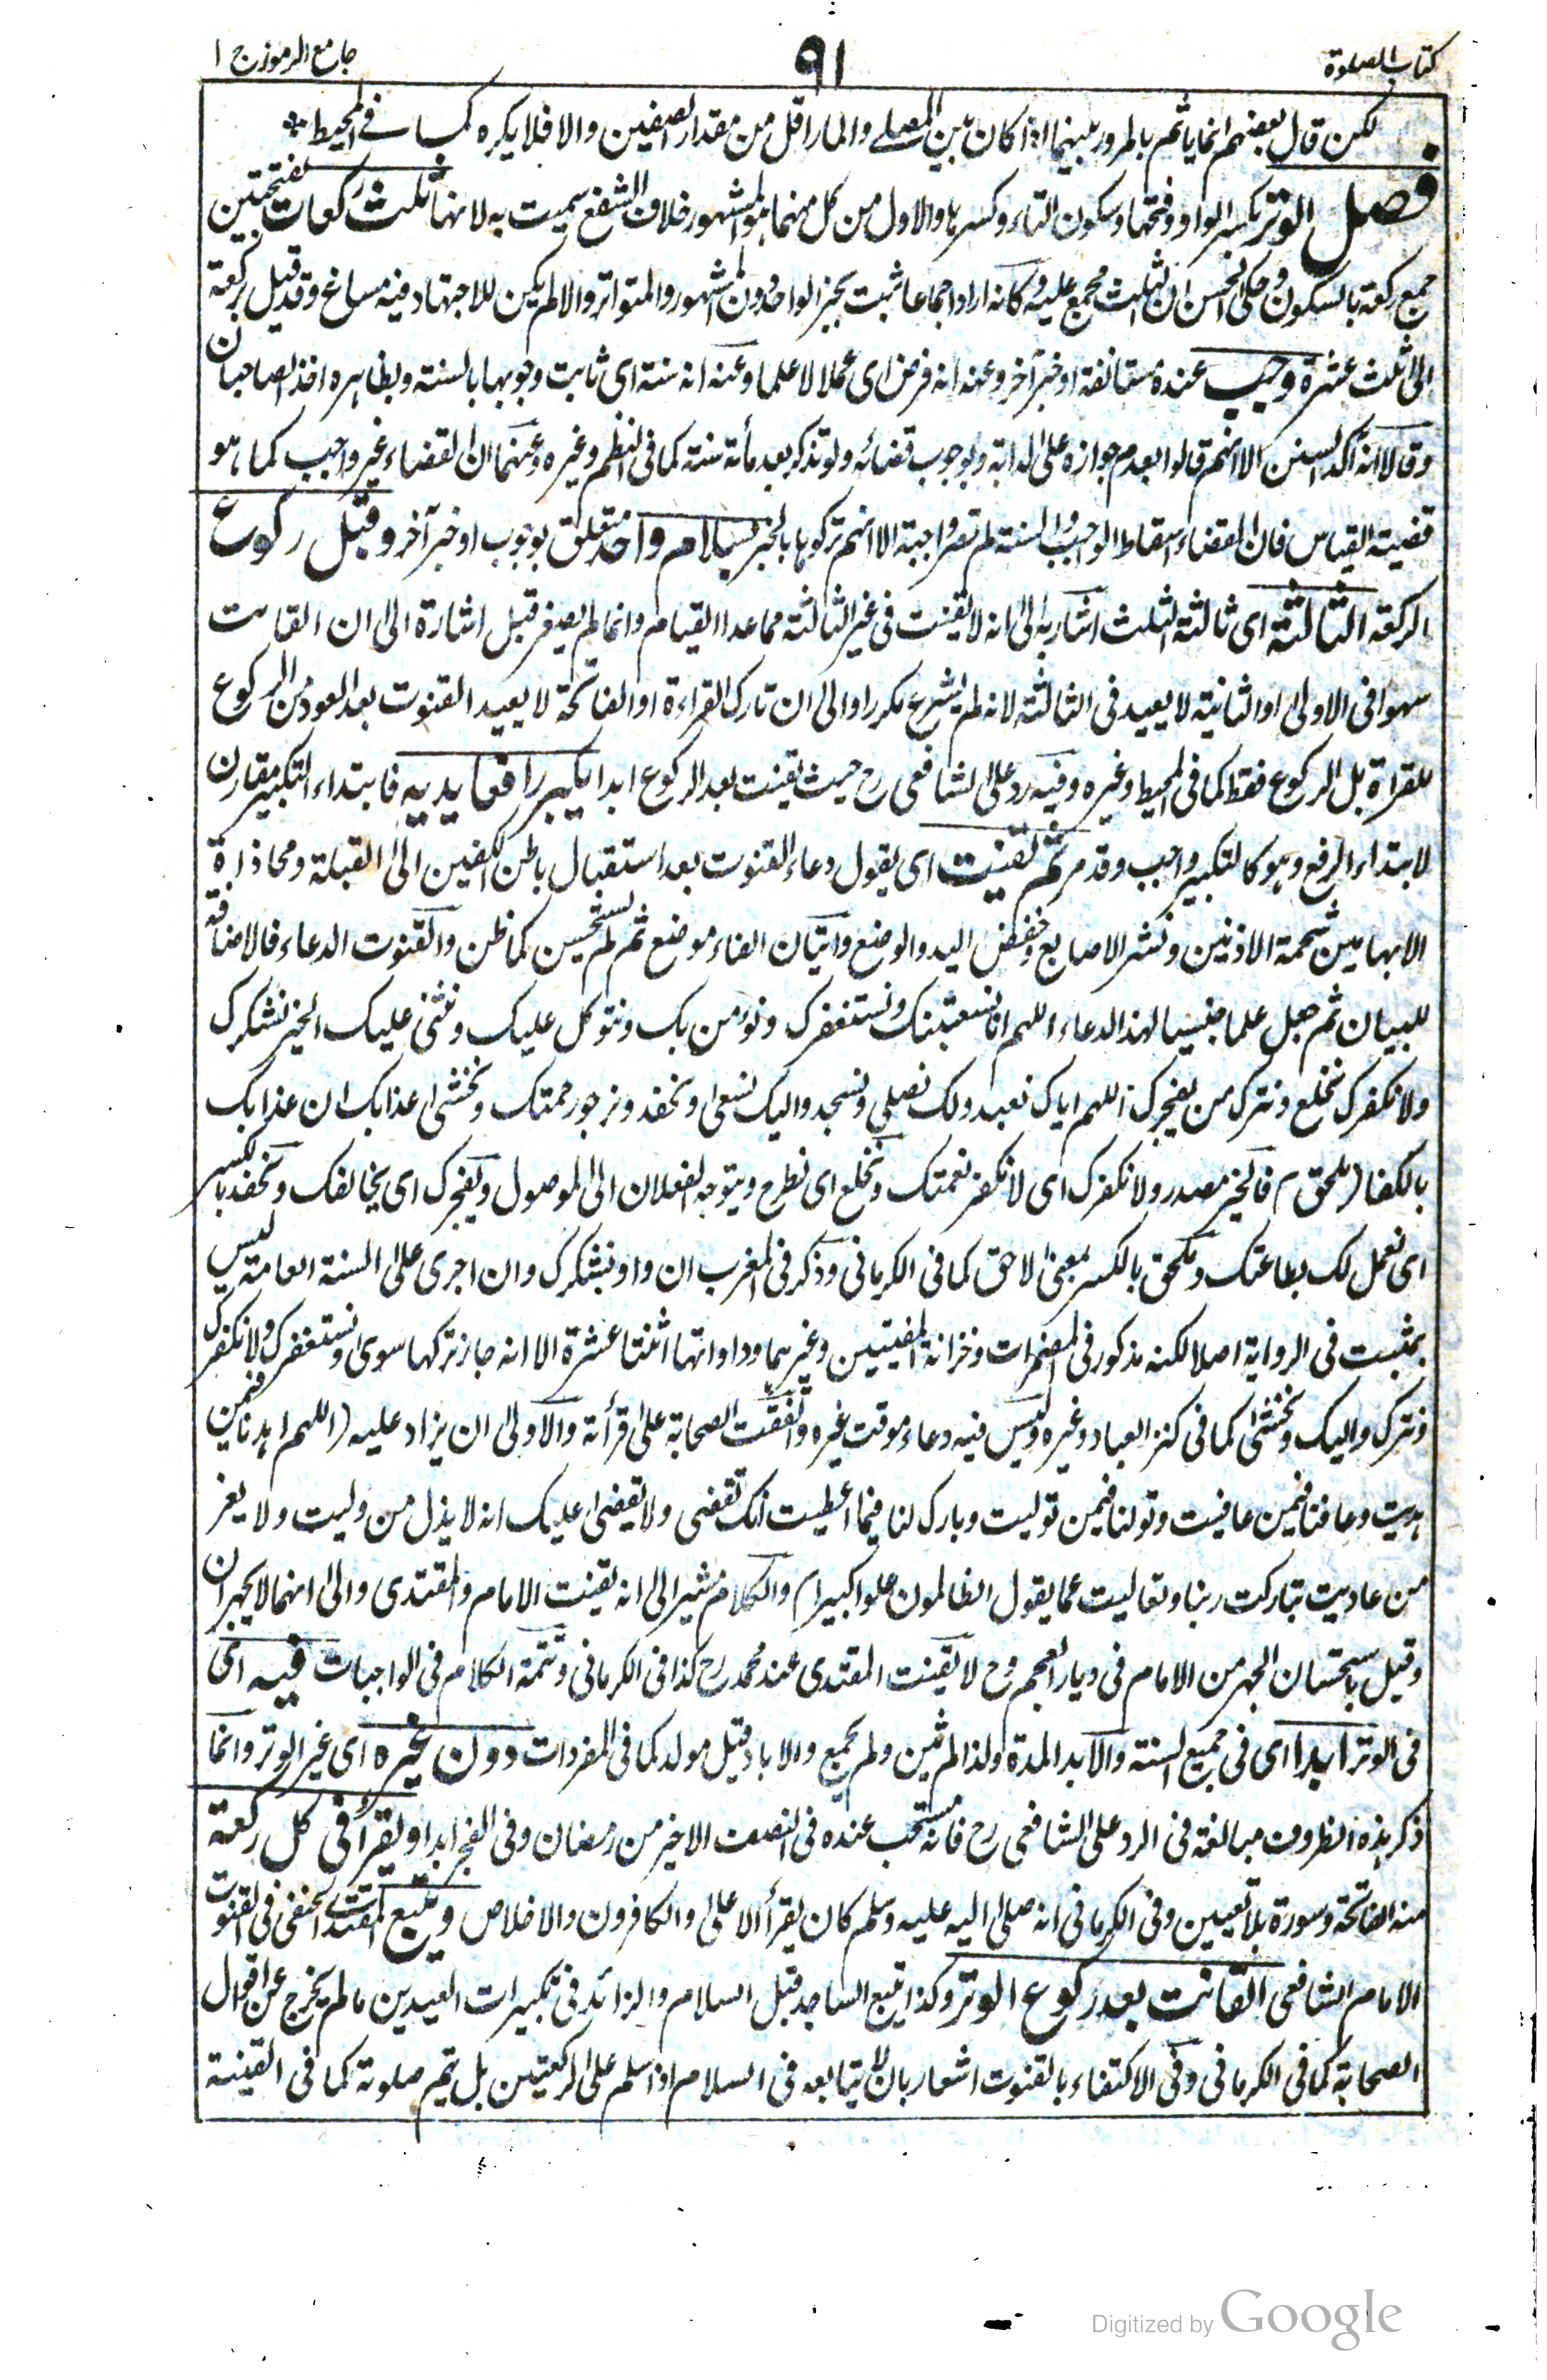 كتاب الصلوة
٩١
جامع الرموز ج ١
لكن قال بعضهم انما ياثم بالمرور بينهما اذا كان بين المصلے والمار اقل من مقدار الصفين والا فلا يكره كما فے المحيط *
فصل الوتر بكسر الواو وفتحها وسكون التاء وكسرها والاول من كل منهما هو المشهور خلاف الشفع سميت به لانها ثلث ركعات بفتحتين
جمع ركعة بالسكون وحكى الحسن ان الثلث مجمع عليه وكانه اراد اجماعا ثبت بخبر الواحد دون المشهور والمتواتر والا لم يكن للاجتهاد فيه مساغ وقد قيل بركعة
الى الثلث عشرة وجب عنده مستانفة او خبر آخر وعنه انه فرض اى عملا لا علما وعنه انه سنة اى ثابت وجوبها بالسنة وبظاهره اخذ الصاحبان
وقالا انه آكد السنن الا انهم قالوا بعدم جوازه على الدابة وبوجوب قضائه ولو تذكر بعد مأة سنة كما فى النظم وغيره وعنهما ان القضاء غير واجب كما هو
قضية القياس فان القضاء اسقاط الواجب والسنة لم تصر واجبة الا انهم تركوها بالخبر بسلام واحد متعلق بوجوب او خبر آخر وقبل ركوع
الركعة الثالثة اى ثالثة الثلث اشار به الى انه لا يقنت فى غير الثالثة مما عدا القيام وانما لم يصغر قبل اشارة الى ان القانت
سهوا فى الاولى او الثانية لا يعيد فى الثالثة لانه لم يشرع مكررا والى ان تارك القراءة او الفاتحة لا يعيد القنوت بعد العود من الركوع
للقراة بل الركوع فقط كما فى المحيط وغيره وفيه رد على الشافعى رح حيث يقنت بعد الركوع ابدا يكبر رافعا يديه فابتداء التكبير مقارن
لابتداء الرفع وهو كالتكبير واجب وقد مر ثم يقنت اى يقول دعاء القنوت بعد استقبال باطن الكفين الى القبلة ومحاذاة
الابهامين شحمة الاذنين ونشر الاصابع وخفض اليد والوضع واتيان الفاء موضع ثم لم يستحسن كما ظن والقنوت الدعاء فالاضافة
للبيان ثم جعل علما جنسيا لهذا الدعاء اللهم انا نستعينك ونستغفرك ونؤمن بك ونتوكل عليك ونثنى عليك الخير نشكرك
ولا نكفرك نخلع ونترك من يفجرك اللهم اياك نعبد ولك نصلى ونسجد واليك نسعى ونحفد ونرجو رحمتك ونخشى عذابك ان عذابك
بالكفار ملحق) فالخير مصدر ولا نكفرك اى لا نكفر نعمتك ونخلع اى نطرح ويتوجه الفعلان الى الموصول ويفجرك اى يخالفك ونحفد بالكسر
اى نعمل لك بطاعتك وملحق بالكسر بمعنى لاحق كما فى الكرمانى وذكر فى المغرب ان واو نشكرك وان اجرى على السنة العامة ليس
بمثبت فى الرواية اصلا لكنه مذكور فى المضمرات وخزانة المفتيين وغيرهما وواواتها اثنتا عشرة الا انه جاز تركها سوى ونستغفرك ولا نكفرك
ونترك واليك ونخشى كما فى كنز العباد وغيره وليس فيه دعاء موقت غيره واتفقت الصحابة على قرأته والاولى ان يزاد عليه (اللهم اهدنا فيمن
هديت وعافنا فيمن عافيت وتولنا فيمن توليت وبارك لنا فيما اعطيت انك تقضى ولا يقضى عليك انه لا يذل من وليت ولا يعز
من عاديت تباركت ربنا وتعاليت عما يقول الظالمون علوا كبيرا) والكلام مشير الى انه يقنت الامام والمقتدى والى انهما لا يجهران
وقيل باستحسان الجهر من الامام فى ديار العجم وح لا يقنت المقتدى عند محمد رح كذا فى الكرمانى وتتمة الكلام فى الواجبات فيه اى
فى الوتر ابدا اى فى جميع السنة والابد المدة ولذا لم يثن ولم يجمع والاباد قيل مولد كما فى المفردات دون غيره اى غير الوتر وانما
ذكر هذه الظروف مبالغة فى الرد على الشافعى رح فانه مستحب عنده فى النصف الاخير من رمضان وفى الفجر ابدا ويقرأ فى كل ركعة
منه الفاتحة وسورة بلا تعيين وفى الكرمانى انه صلى الله عليه وسلم كان يقرأ الاعلى والكافرون والاخلاص ويتبع المقتدى الحنفى فى القنوت
الامام الشافعى القانت بعد ركوع الوتر وكذا يتبع الساجد قبل السلام والزائد فى تكبيرات العيدين ما لم يخرج عن اقوال
الصحابة كما فى الكرمانى وفى الاكتفاء بالقنوت اشعار بان لا يتابعه فى السلام اذا سلم على الركعتين بل يتم صلوته كما فى القينية
Digitized by Google